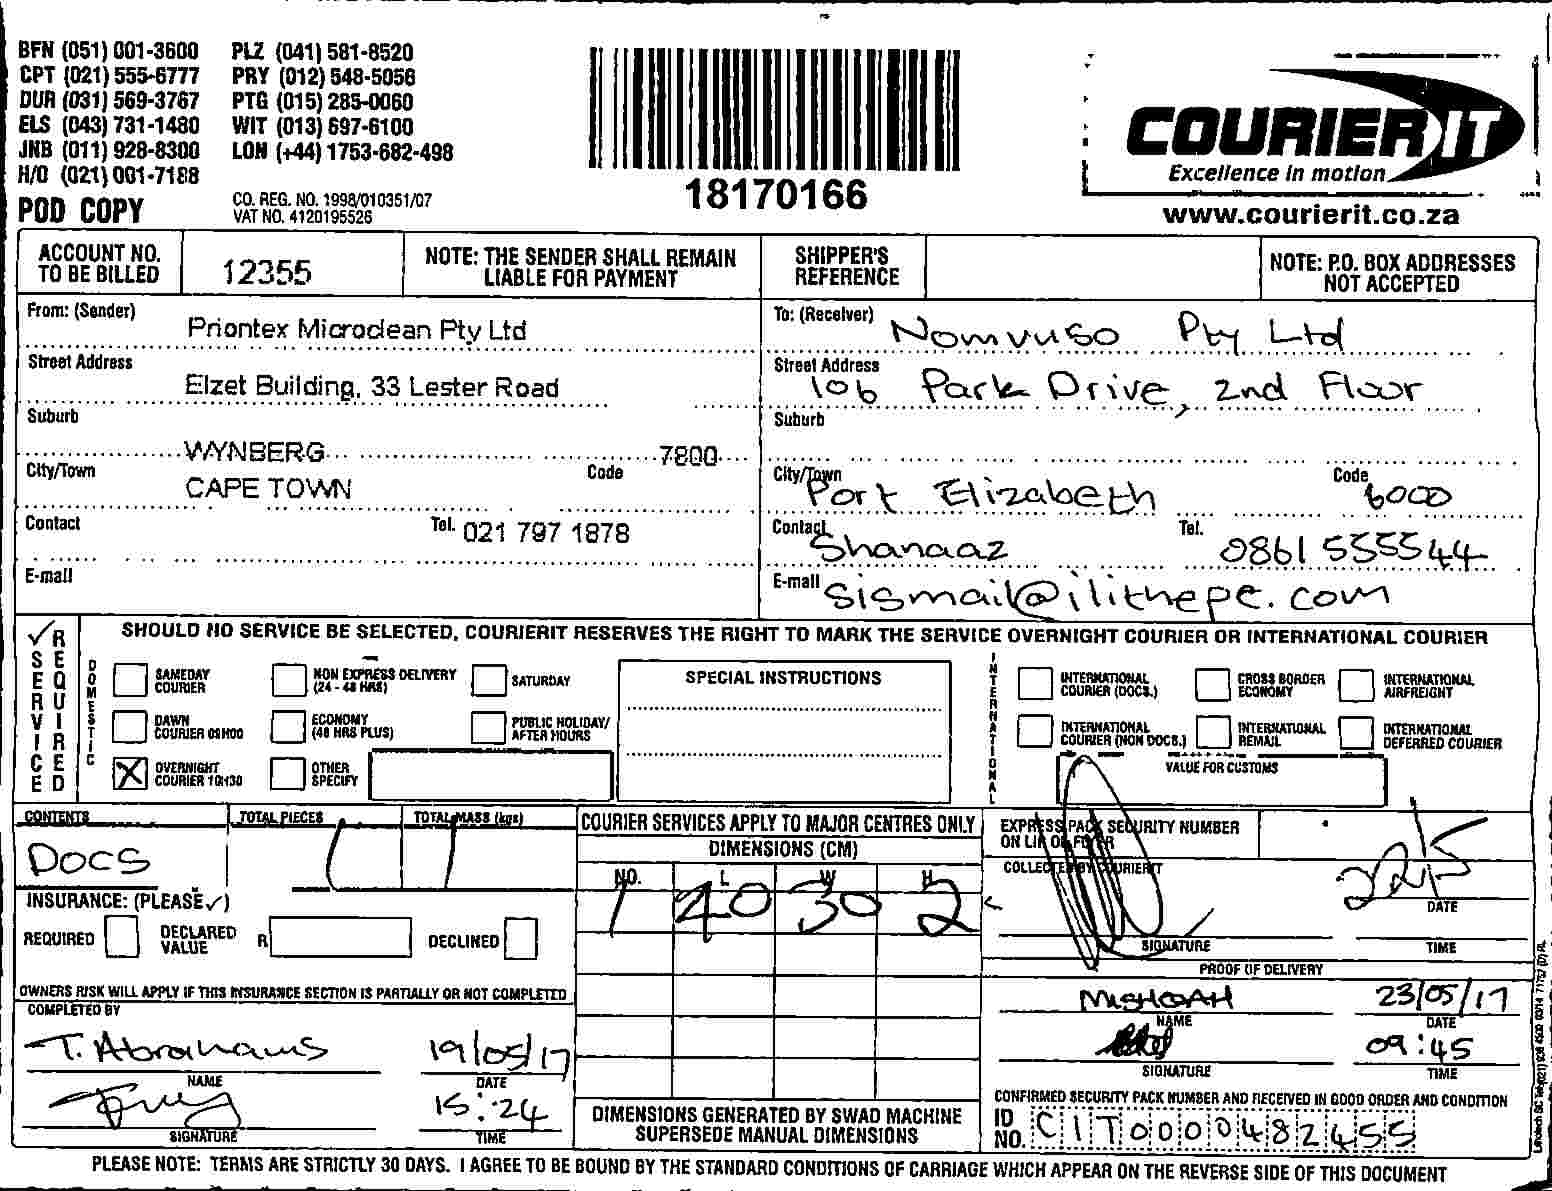 BFN (051) 001-3600 PLZ (041) 581-8520
CPT (021) 555-6777 PRY (012) 548-5056
DUR (031) 569-3767 PTG (015) 285-0060
ELS (043) 731-1480 WIT (013) 697-6100
JNB (011) 928-8300 LON (+44) 1753-682-498
H/O (021) 001-7188
POD COPY
CO. REG. NO. 1998/010351/07
VAT NO. 4120195526
18170166
COURIER IT
Excellence in motion
www.courierit.co.za
ACCOUNT NO. TO BE BILLED 12355
NOTE: THE SENDER SHALL REMAIN LIABLE FOR PAYMENT
SHIPPER'S REFERENCE
NOTE: P.O. BOX ADDRESSES NOT ACCEPTED
From: (Sender) Priontex Microclean Pty Ltd
Street Address Elzet Building, 33 Lester Road
Suburb WYNBERG 7800
City/Town CAPE TOWN Code
Contact Tel. 021 797 1878
E-mail
To: (Receiver) Nomvuso Pty Ltd
Street Address 106 Park Drive, 2nd Floor
Suburb
City/Town Port Elizabeth Code 6000
Contact Shanaaz Tel. 0861 555544
E-mail sismail@ilithepe.com
✓ SERVICE REQUIRED
SHOULD NO SERVICE BE SELECTED, COURIERIT RESERVES THE RIGHT TO MARK THE SERVICE OVERNIGHT COURIER OR INTERNATIONAL COURIER
DOMESTIC
SAMEDAY COURIER
NON EXPRESS DELIVERY (24 - 48 HRS)
SATURDAY
DAWN COURIER 09H00
ECONOMY (48 HRS PLUS)
PUBLIC HOLIDAY/ AFTER HOURS
X OVERNIGHT COURIER 10H30
OTHER SPECIFY
SPECIAL INSTRUCTIONS
INTERNATIONAL
INTERNATIONAL COURIER (DOCS.)
CROSS BORDER ECONOMY
INTERNATIONAL AIRFREIGHT
INTERNATIONAL COURIER (NON DOCS.)
INTERNATIONAL REMAIL
INTERNATIONAL DEFERRED COURIER
VALUE FOR CUSTOMS
CONTENTS TOTAL PIECES TOTAL MASS (kgs)
DOCS 1 1
INSURANCE: (PLEASE ✓)
REQUIRED DECLARED VALUE R DECLINED
OWNERS RISK WILL APPLY IF THIS INSURANCE SECTION IS PARTIALLY OR NOT COMPLETED
COMPLETED BY
T. Abrahams 19/05/17
NAME DATE
15:24
SIGNATURE TIME
COURIER SERVICES APPLY TO MAJOR CENTRES ONLY
DIMENSIONS (CM)
NO. L W H
1 40 30 2
DIMENSIONS GENERATED BY SWAD MACHINE SUPERSEDE MANUAL DIMENSIONS
EXPRESS PACK SECURITY NUMBER ON LIP OF FLYER
COLLECTED BY COURIERIT
22/5
DATE
SIGNATURE TIME
PROOF OF DELIVERY
23/05/17
NAME DATE
09:45
SIGNATURE TIME
CONFIRMED SECURITY PACK NUMBER AND RECEIVED IN GOOD ORDER AND CONDITION
ID NO. CIT0000482455
PLEASE NOTE: TERMS ARE STRICTLY 30 DAYS. I AGREE TO BE BOUND BY THE STANDARD CONDITIONS OF CARRIAGE WHICH APPEAR ON THE REVERSE SIDE OF THIS DOCUMENT